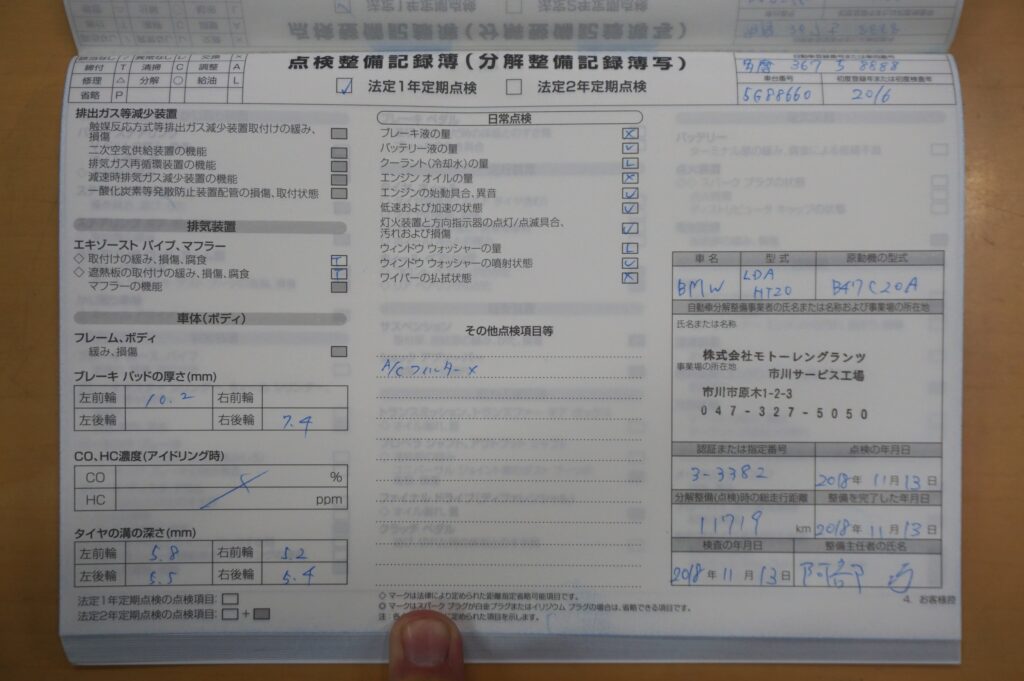 点検整備記録簿(分解整備記録簿写)
法定1年定期点検
法定2年定期点検
締付 T 清掃 C 調整 A
修理 △ 分解 ○ 給油 L
省略 P
車台番号
初度登録年または初度検査年
5G88660
2016
排出ガス等減少装置
触媒反応方式等排出ガス減少装置取付けの緩み、
損傷
二次空気供給装置の機能
排気ガス再循環装置の機能
減速時排気ガス減少装置の機能
一酸化炭素等発散防止装置配管の損傷、取付状態
排気装置
エキゾースト パイプ、マフラー
◇ 取付けの緩み、損傷、腐食 T
◇ 遮熱板の取付けの緩み、損傷、腐食 T
マフラーの機能
車体(ボディ)
フレーム、ボディ
緩み、損傷
ブレーキ パッドの厚さ(mm)
左前輪 10.2 右前輪
左後輪 右後輪 7.4
CO、HC濃度(アイドリング時)
CO %
HC ppm
タイヤの溝の深さ(mm)
左前輪 5.8 右前輪 5.2
左後輪 5.5 右後輪 5.4
法定1年定期点検の点検項目:
法定2年定期点検の点検項目: +
日常点検
ブレーキ液の量
バッテリー液の量
クーラント(冷却水)の量 L
エンジン オイルの量
エンジンの始動具合、異音
低速および加速の状態
灯火装置と方向指示器の点灯/点滅具合、
汚れおよび損傷
ウィンドウ ウォッシャーの量 L
ウィンドウ ウォッシャーの噴射状態
ワイパーの払拭状態
その他点検項目等
A/Cフィルター ×
◇ マークは法律により定められた距離指定省略可能項目です。
◎ マークはスパーク プラグが白金プラグまたはイリジウム プラグの場合は、省略できる項目です。
車名 型式 原動機の型式
BMW LDA HT20 B47C20A
自動車分解整備事業者の氏名または名称および事業場の所在地
氏名または名称
株式会社モトーレングランツ
事業場の所在地
市川サービス工場
市川市原木1-2-3
047-327-5050
認証または指定番号 点検の年月日
3-3382 2018年 11月 13日
分解整備(点検)時の総走行距離 整備を完了した年月日
11719 km 2018年 11月 13日
検査の年月日 整備主任者の氏名
2018年 11月 13日 阿部
4. お客様控